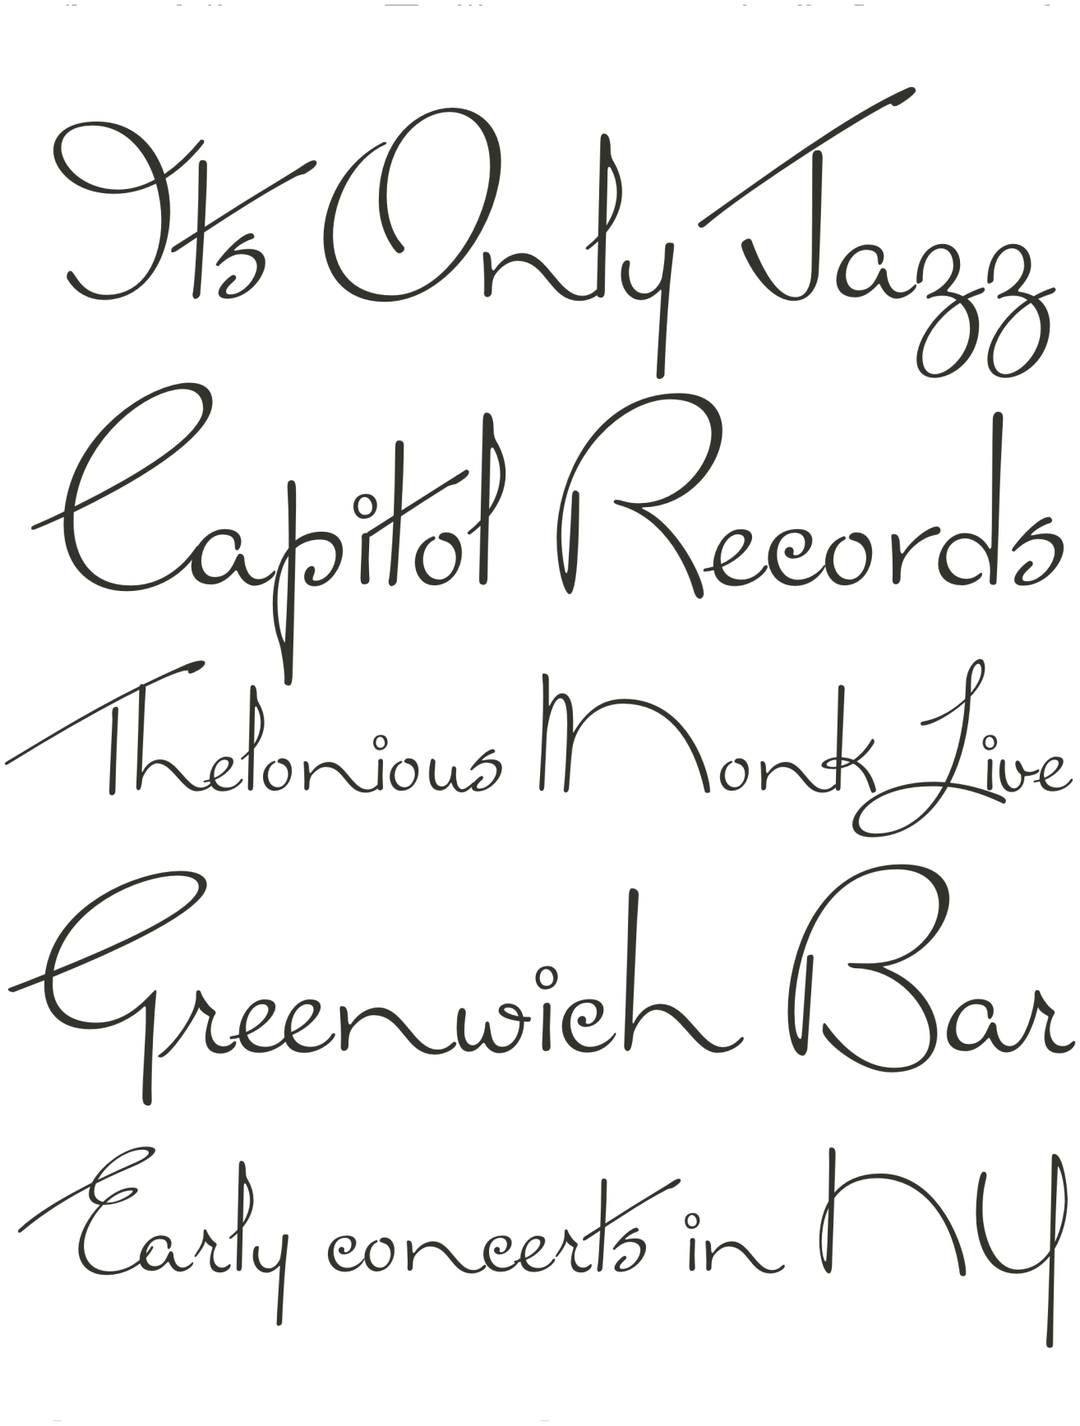 Its Only Jazz
Capitol Records
Thelonious Monk Live
Greenwich Bar
Early concerts in NY